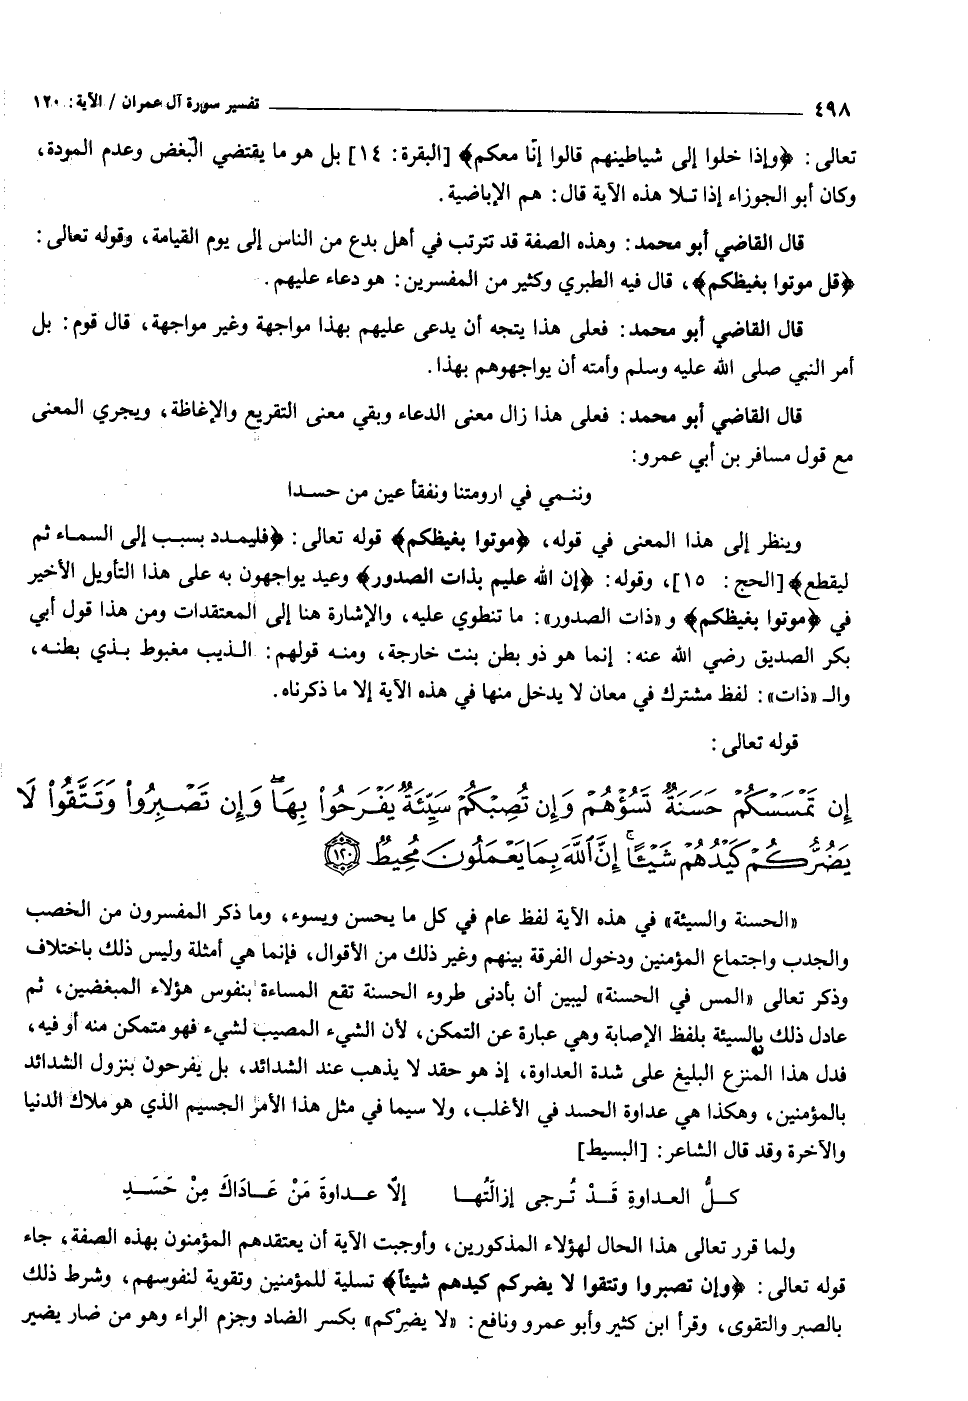 ٤٩٨ تفسير سورة آل عمران / الآية: ١٢٠
تعالى: ﴿وإذا خلوا إلى شياطينهم قالوا إنّا معكم﴾ [البقرة: ١٤] بل هو ما يقتضي البّغض وعدم المودة،
وكان أبو الجوزاء إذا تـلا هذه الآية قال: هم الإباضية.
قال القاضي أبو محمد: وهذه الصفة قد تترتب في أهل بدع من الناس إلى يوم القيامة، وقوله تعالى:
﴿قل موتوا بغيظكم﴾، قال فيه الطبري وكثير من المفسرين: هو دعاء عليهم.
قال القاضي أبو محمد: فعلى هذا يتجه أن يدعى عليهم بهذا مواجهة وغير مواجهة، قال قوم: بل
أمر النبي صلى الله عليه وسلم وأمته أن يواجهوهم بهذا.
قال القاضي أبو محمد: فعلى هذا زال معنى الدعاء وبقي معنى التقريع والإغاظة، ويجري المعنى
مع قول مسافر بن أبي عمرو:
وننـمي في ارومتنا ونفقأ عين من حسـدا
وينظر إلى هذا المعنى في قوله، ﴿موتوا بغيظكم﴾ قوله تعالى: ﴿فليمـدد بسبـب إلى السمـاء ثم
ليقطع﴾ [الحج: ١٥]، وقوله: ﴿إن الله عليم بذات الصدور﴾ وعيد يواجهون به على هذا التأويل الأخير
في ﴿موتوا بغيظكم﴾ و«ذات الصدور»: ما تنطوي عليه، والإشارة هنا إلى المعتقدات ومن هذا قول أبي
بكر الصديق رضي الله عنه: إنما هو ذو بطن بنت خارجة، ومنـه قولهم: الـذيب مغبوط بـذي بطنـه،
والـ «ذات»: لفظ مشترك في معان لا يدخل منها في هذه الآية إلا ما ذكرناه.
قوله تعالى:
إِن تَمْسَسْكُمْ حَسَنَةٌ تَسُؤْهُمْ وَإِن تُصِبْكُمْ سَيِّئَةٌ يَفْرَحُواْ بِهَا ۖ وَإِن تَصْبِرُواْ وَتَتَّقُواْ لَا
يَضُرُّكُمْ كَيْدُهُمْ شَيْـًٔا ۗ إِنَّ ٱللَّهَ بِمَا يَعْمَلُونَ مُحِيطٌ ١٢٠
«الحسنة والسيئة» في هذه الآية لفظ عام في كل ما يحسن ويسوء، وما ذكر المفسرون من الخصب
والجدب واجتماع المؤمنين ودخول الفرقة بينهم وغير ذلك من الأقوال، فإنما هي أمثلة وليس ذلك باختلاف
وذكر تعالى «المس في الحسنة» ليبين أن بأدنى طروء الحسنة تقع المساءة بنفوس هؤلاء المبغضين، ثم
عادل ذلك بالسيئة بلفظ الإصابة وهي عبارة عن التمكن، لأن الشيء المصيب لشيء فهو متمكن منه أو فيه،
فدل هذا المنزع البليغ على شدة العداوة، إذ هو حقد لا يذهب عند الشدائد، بل يفرحون بنزول الشدائد
بالمؤمنين، وهكذا هي عداوة الحسد في الأغلب، ولا سيما في مثل هذا الأمر الجسيم الذي هو ملاك الدنيا
والآخرة وقد قال الشاعر: [البسيط]
كـلُّ العـداوةِ قَـدْ تُـرجى إزالَتُهـا إلاّ عـداوةَ مَنْ عَـادَاكَ مِنْ حَسَـدِ
ولما قرر تعالى هذا الحال لهؤلاء المذكورين، وأوجبت الآية أن يعتقدهم المؤمنون بهذه الصفة، جاء
قوله تعالى: ﴿وإن تصبروا وتتقوا لا يضركم كيدهم شيئاً﴾ تسلية للمؤمنين وتقوية لنفوسهم، وشرط ذلك
بالصبر والتقوى، وقرأ ابن كثير وأبو عمرو ونافع: «لا يضِرْكم» بكسر الضاد وجزم الراء وهو من ضار يضير